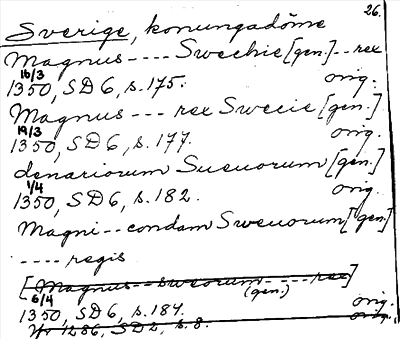 26.
Sverige, konungadöme
Magnus ---- Swechie [gen.] -- rex
16/3
1350, SD 6, s. 175. orig.
Magnus --- rex Swecie [gen.]
19/3
1350, SD 6, s. 177. orig.
denariorum Sueuorum [gen.]
1/4
1350, SD 6, s. 182. orig.
Magni -- condam Sweuorum [gen]
---- regis
[Magnus -- sweorum ---- rex]
(gen.)
6/4
1350, SD 6, s. 184. orig.
1286, SD 2, s. 8. orig.